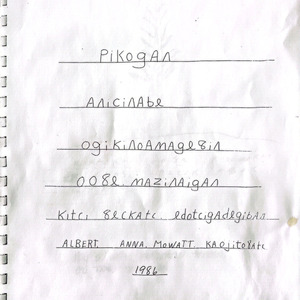 PiKogAn
AniciNAbe
ogiKiNoAMAge8iN
008e. MAZiNAigAN
Kitci 8eCKAtc. edotcigAdegibAn
ALBERT. ANNA. MoWATT. KAojitoYAtc
1986